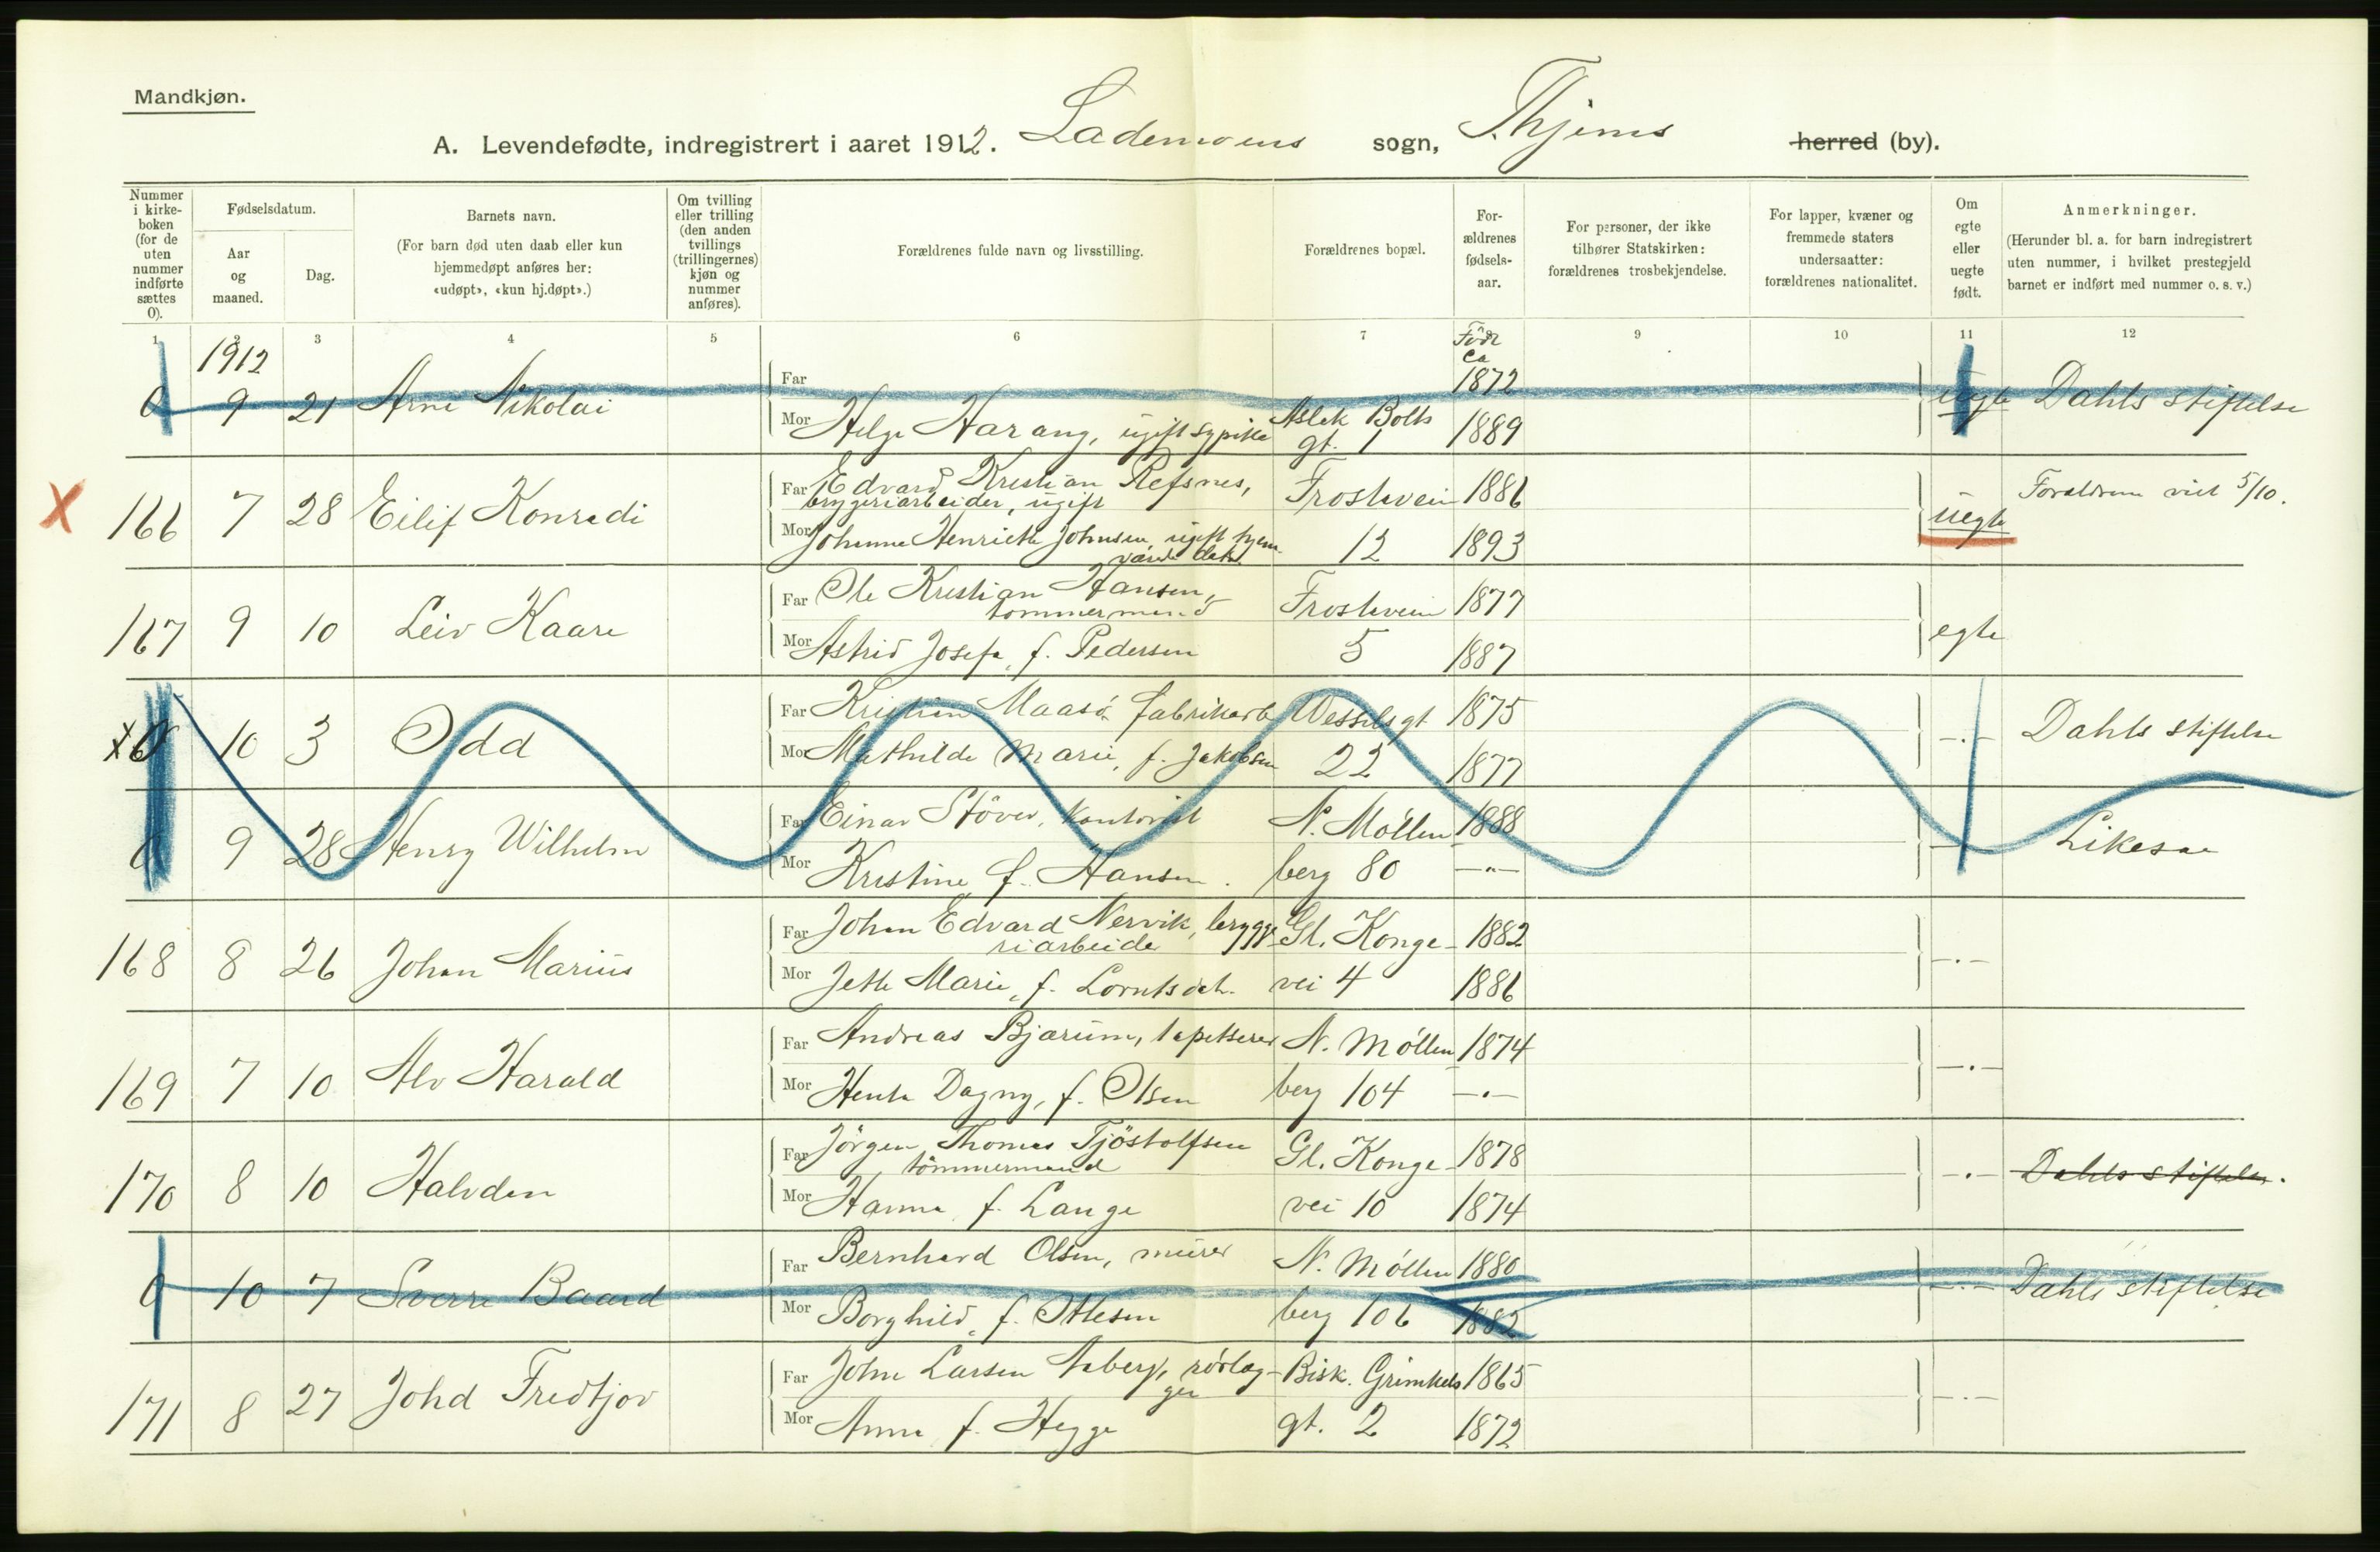 Mandkjøn.
A. Levendefødte, indregistrert i aaret 1912. Lademoens sogn, Thjems herred (by).
Nummer i kirke-boken (for de uten nummer indførte sættes 0).
Fødselsdatum.
Aar og maaned.
Dag.
Barnets navn.
(For barn død uten daab eller kun hjemmedøpt anføres her: «udøpt», «kun hj.døpt».)
Om tvilling eller trilling (den anden tvillings (trillingernes) kjøn og nummer anføres).
Forældrenes fulde navn og livsstilling.
Forældrenes bopæl.
For-ældrenes fødsels-aar.
For personer, der ikke tilhører Statskirken: forældrenes trosbekjendelse.
For lapper, kvæner og fremmede staters undersaatter: forældrenes nationalitet.
Om egte eller uegte født.
Anmerkninger.
(Herunder bl. a. for barn indregistrert uten nummer, i hvilket prestegjeld barnet er indført med nummer o. s. v.)
1 2 3 4 5 6 7 8 9 10 11 12
1912
Født ca
0 9 21 Arne Nikolai Far 1872 uegte Dahls stiftelse
Mor Helga Harang, ugift sypike Aslak Bolts gt. 1 1889
X 166 7 28 Eilif Konradi Far Edvard Kristian Refsnes, bryggeriarbeider, ugift Frostavein 1886 uegte Forældrene viet 5/10.
Mor Johanne Henriette Johnsen, ugift hjemværende datter 12 1893
167 9 10 Leiv Kaare Far Ole Kristian Hansen, tømmermand Frostavein 1877 egte
Mor Astrid Josefa, f. Pedersen 5 1887
0 10 3 Odd Far Kristian Maasø, fabrikarb Wesselsgt 1875 -"- Dahls stiftelse
Mor Mathilde Marie, f. Jakobsen 22 1877
0 9 28 Henry Wilhelm Far Einar Støver, kontorist N. Møllen 1888 Likesaa
Mor Kristine f. Hansen. berg 80 -"-
168 8 26 Johan Marius Far Johan Edvard Nervik, brygge-riarbeide Gl. Konge- 1882 -"-
Mor Jette Marie, f. Lorntsdt. vei 4 1886
169 7 10 Alv Harald Far Andreas Bjærum, tapetserer N. Møllen 1874 -"-
Mor Dagny, f. Olsen berg 104 -"-
170 8 10 Halvdan Far Jørgen Thomas Tjøstolfsen tømmermand Gl. Konge- 1878 -"- Dahls stiftelse.
Mor Hanna f. Lange vei 10 1874
0 10 7 Sverre Baard Far Bernhard Olsen, murer N. Møllen 1880 -"- Dahls stiftelse
Mor Borghild, f. Ottesen berg 106 1882
171 8 27 Johd Fredtjov Far John Larsen Aaberg, rørlæg-ger Bisk. Grimkels 1865 -"-
Mor Anna f. Hegge gt. 2 1872